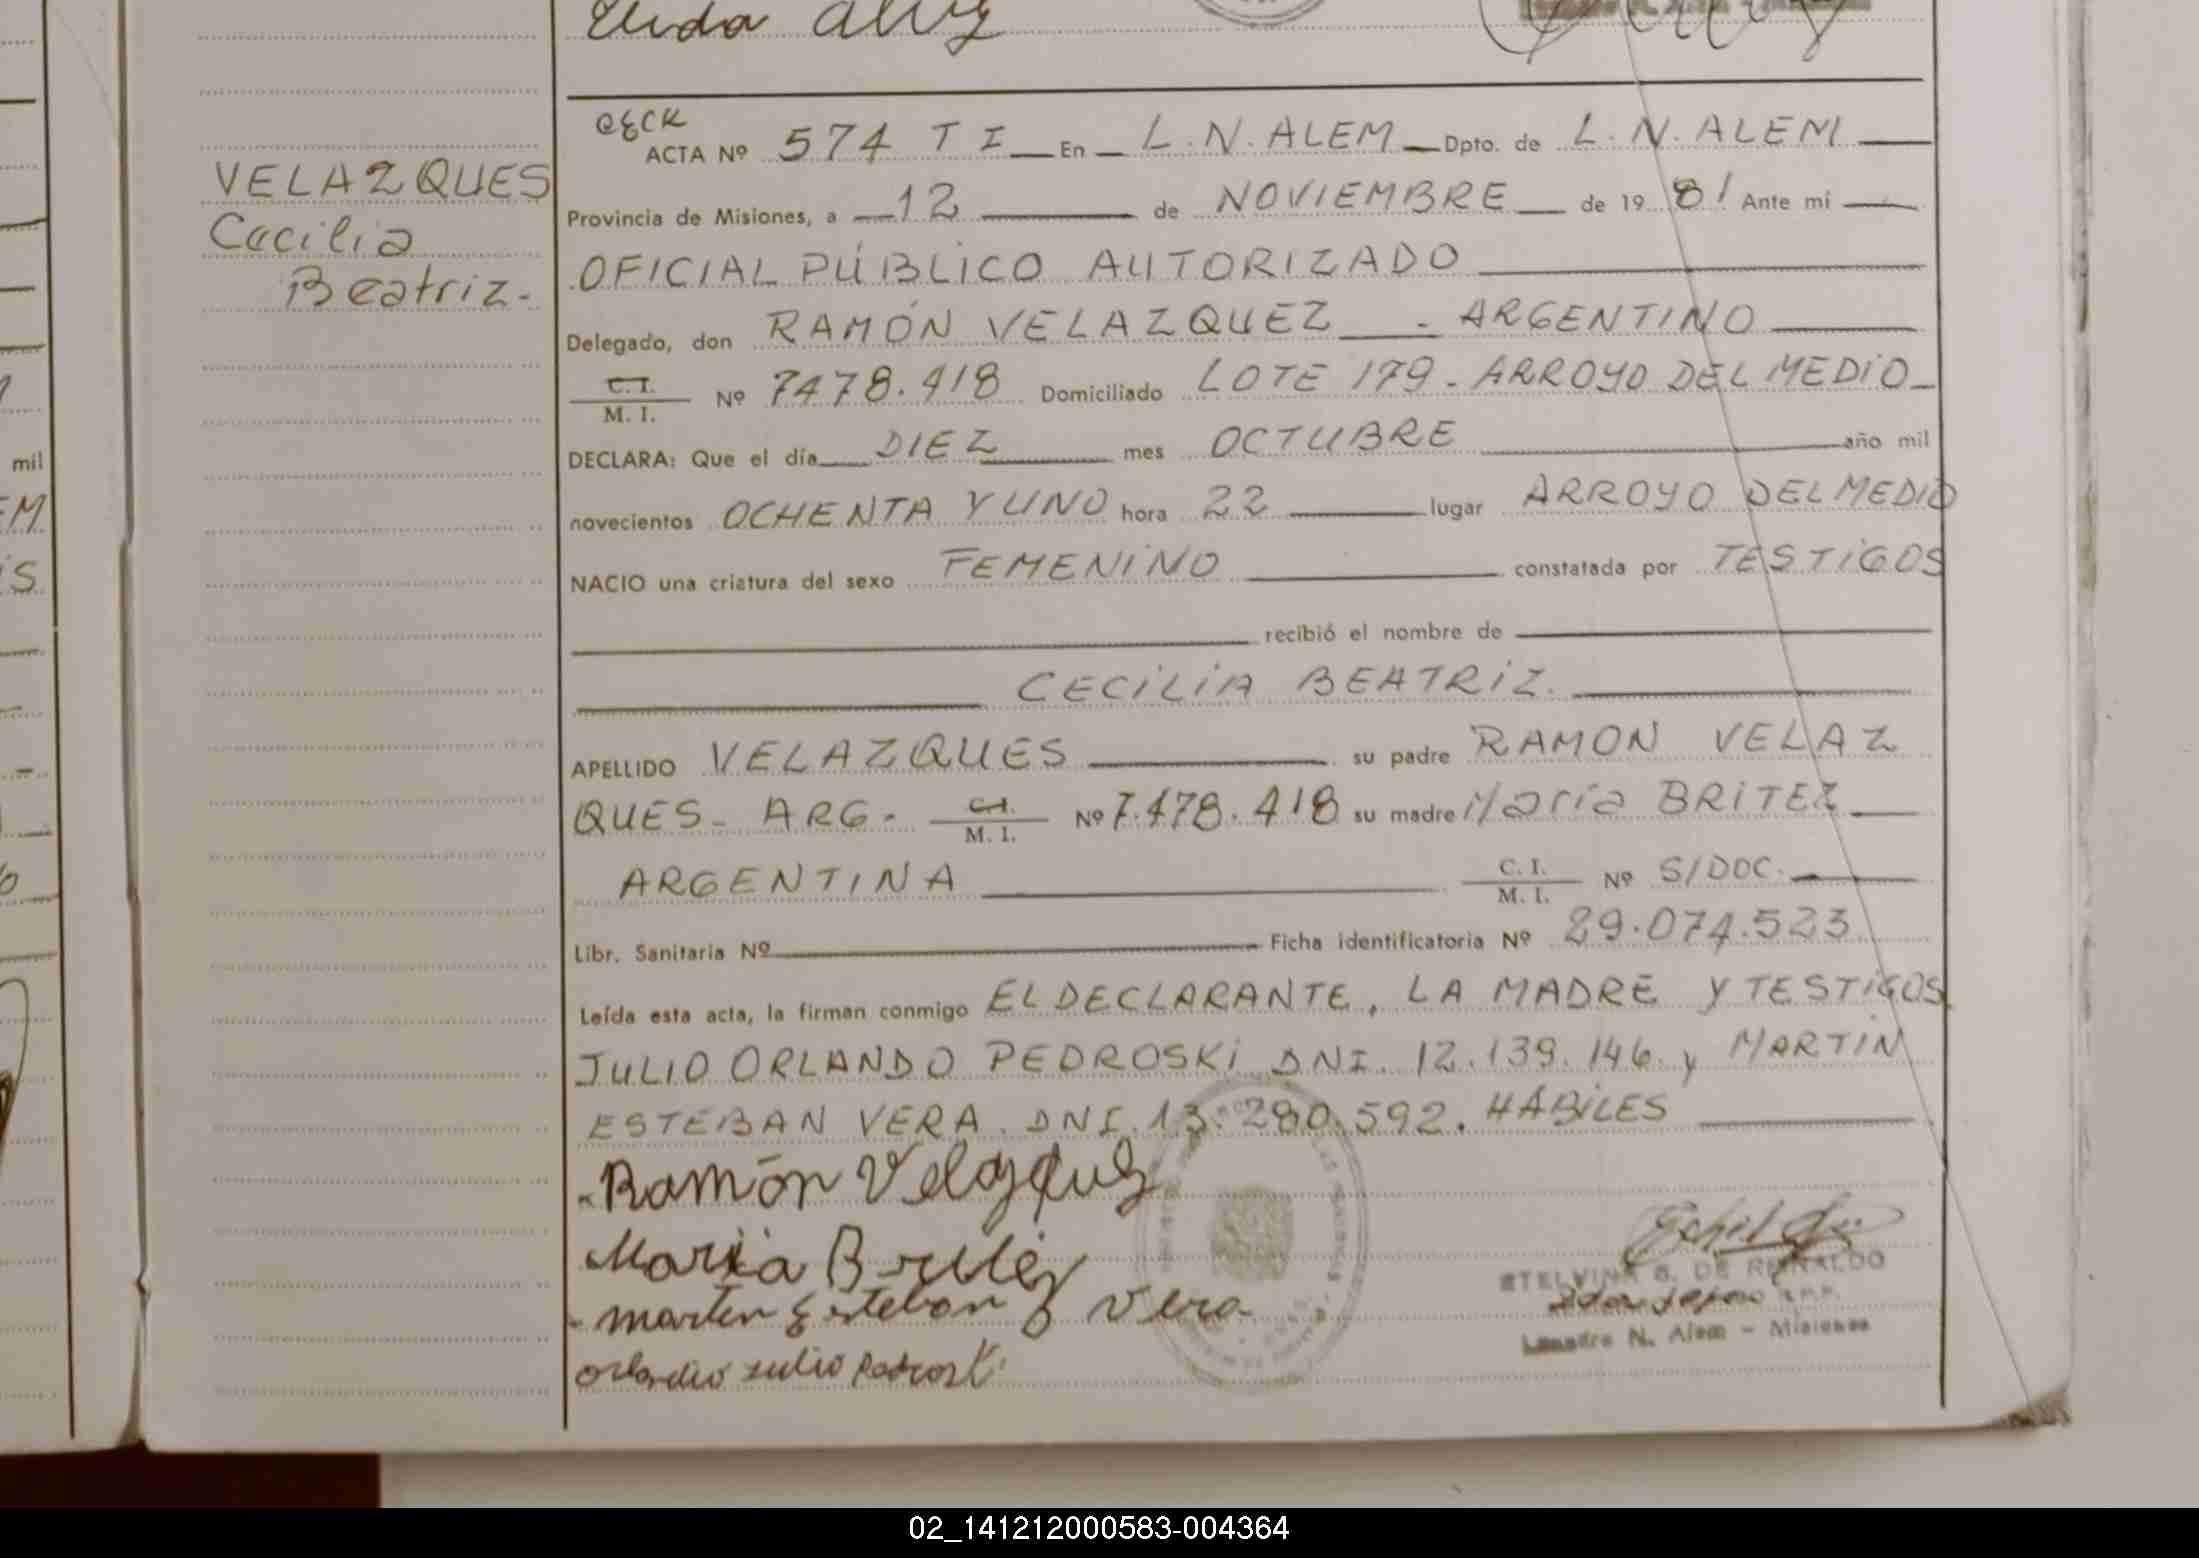 Elida
CECK
ACTA Nº 574 T I En L.N. ALEM Dpto. de L.N. ALEM
VELAZQUES
Cecilia
Beatriz.-
Provincia de Misiones, a 12 de NOVIEMBRE de 19 81 Ante mí
OFICIAL PÚBLICO AUTORIZADO
Delegado, don RAMÓN VELAZQUEZ - ARGENTINO
C.I. / M. I. Nº 7478.418 Domiciliado LOTE 179 - ARROYO DEL MEDIO
DECLARA: Que el día DIEZ mes OCTUBRE año mil
novecientos OCHENTA Y UNO hora 22 lugar ARROYO DEL MEDIO
NACIO una criatura del sexo FEMENINO constatada por TESTIGOS
recibió el nombre de
CECILIA BEATRIZ.
APELLIDO VELAZQUES su padre RAMON VELAZ
QUES - ARG. - C.I. / M. I. Nº 7.478.418 su madre María BRITEZ
ARGENTINA C. I. / M. I. Nº S/DOC.
Libr. Sanitaria Nº Ficha identificatoria Nº 29.074.523
Leída esta acta, la firman conmigo EL DECLARANTE, LA MADRE Y TESTIGOS
JULIO ORLANDO PEDROSKI DNI. 12.139.146. y MARTIN
ESTEBAN VERA. DNI. 13.280.592. HÁBILES
Ramón Velazquez
Maria Britez
martin Esteban Vera
orlando Julio
STELVINA G. DE REINALDO
Leandro N. Alem - Misiones
mil
EM
02_141212000583-004364